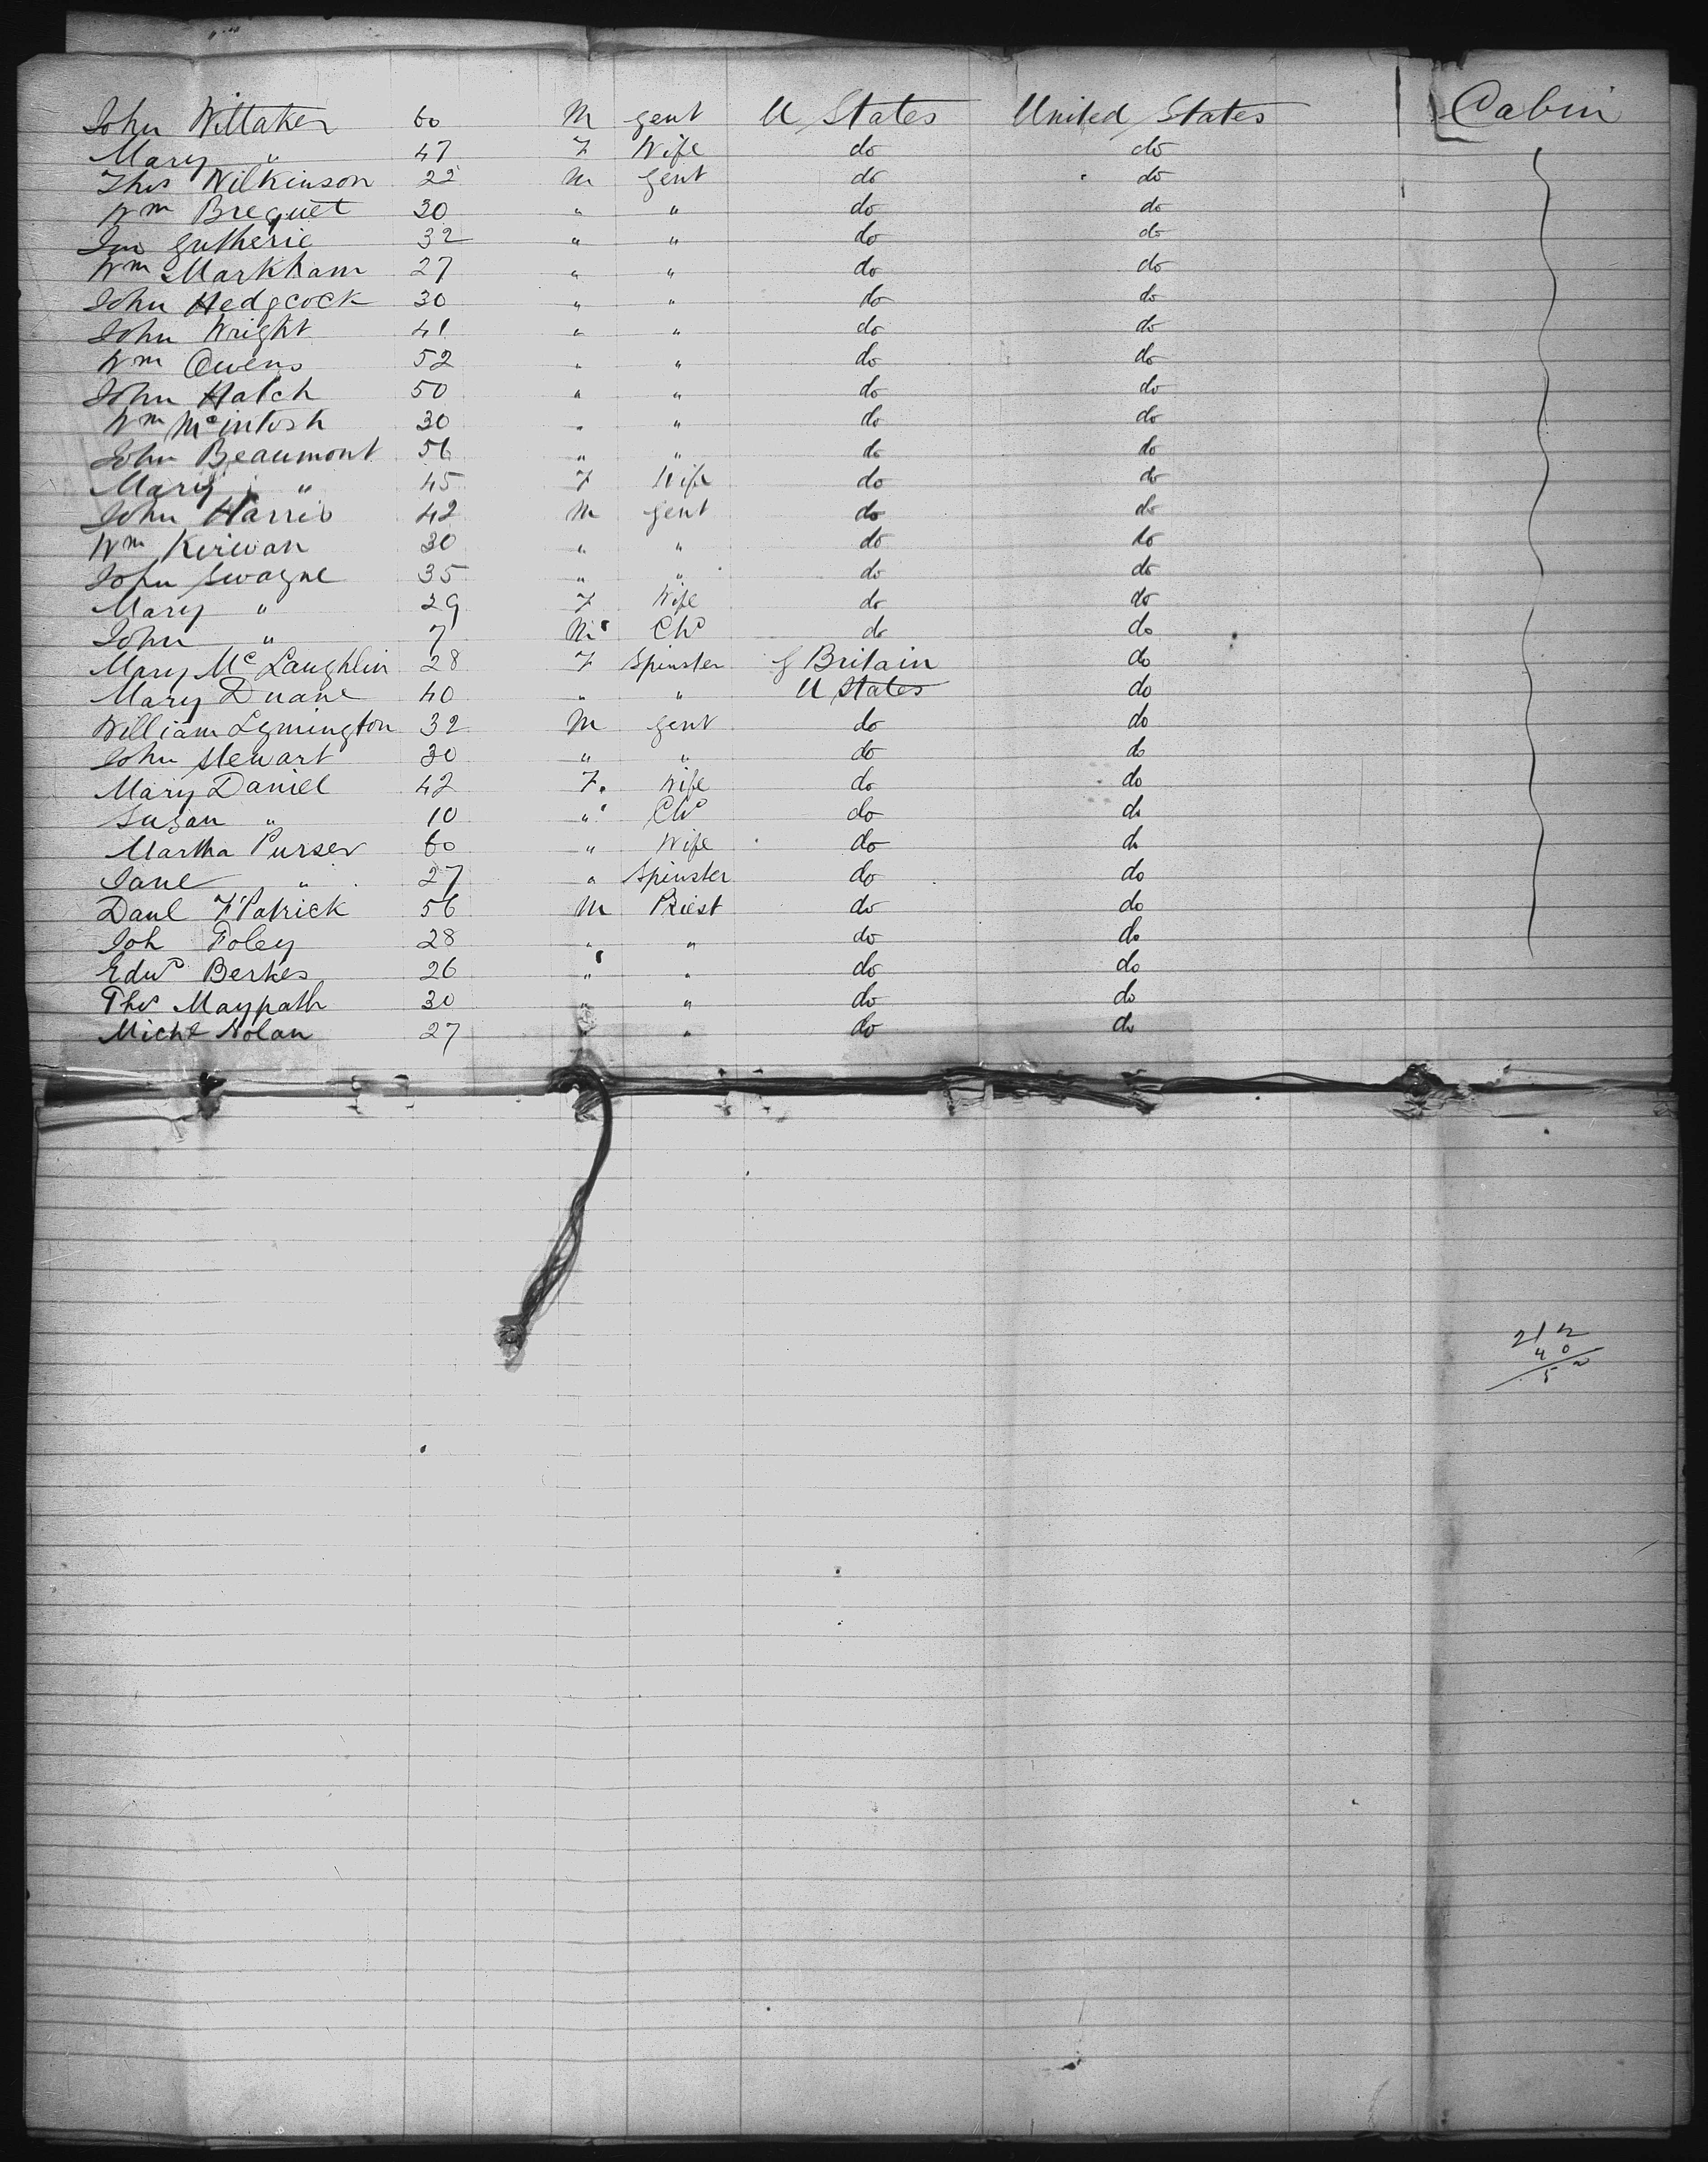 John Wittaker 60 M gent U States United States Cabin
Mary " 47 F Wife do do
Thos Wilkinson 22 M gent do do
Wm Breguet 30 " " do do
Jno Gutherie 32 " " do do
Wm Markham 27 " " do do
John Hedgcock 30 " " do do
John Wright 41 " " do do
Wm Owens 52 " " do do
John Hatch 50 " " do do
Wm McIntosh 30 " " do do
John Beaumont 56 " " do do
Mary " 45 F Wife do do
John Harris 42 M gent do do
Wm Kirwan 30 " " do do
John Swayne 35 " " do do
Mary " 29 F Wife do do
John " 7 M Chd do do
Mary McLaughlin 28 F Spinster G Britain do
Mary Duane 40 " " U States do
William Lymington 32 M gent do do
John Stewart 30 " " do do
Mary Daniel 42 F. Wife do do
Susan " 10 " Chd do do
Martha Purser 60 " Wife do do
Jane " 27 " Spinster do do
Danl F'Patrick 56 M Priest do do
Joh Foley 28 " " do do
Edwd Berkes 26 " " do do
Thos Maypath 30 " " do do
Michl Nolan 27 " " do do
212
40